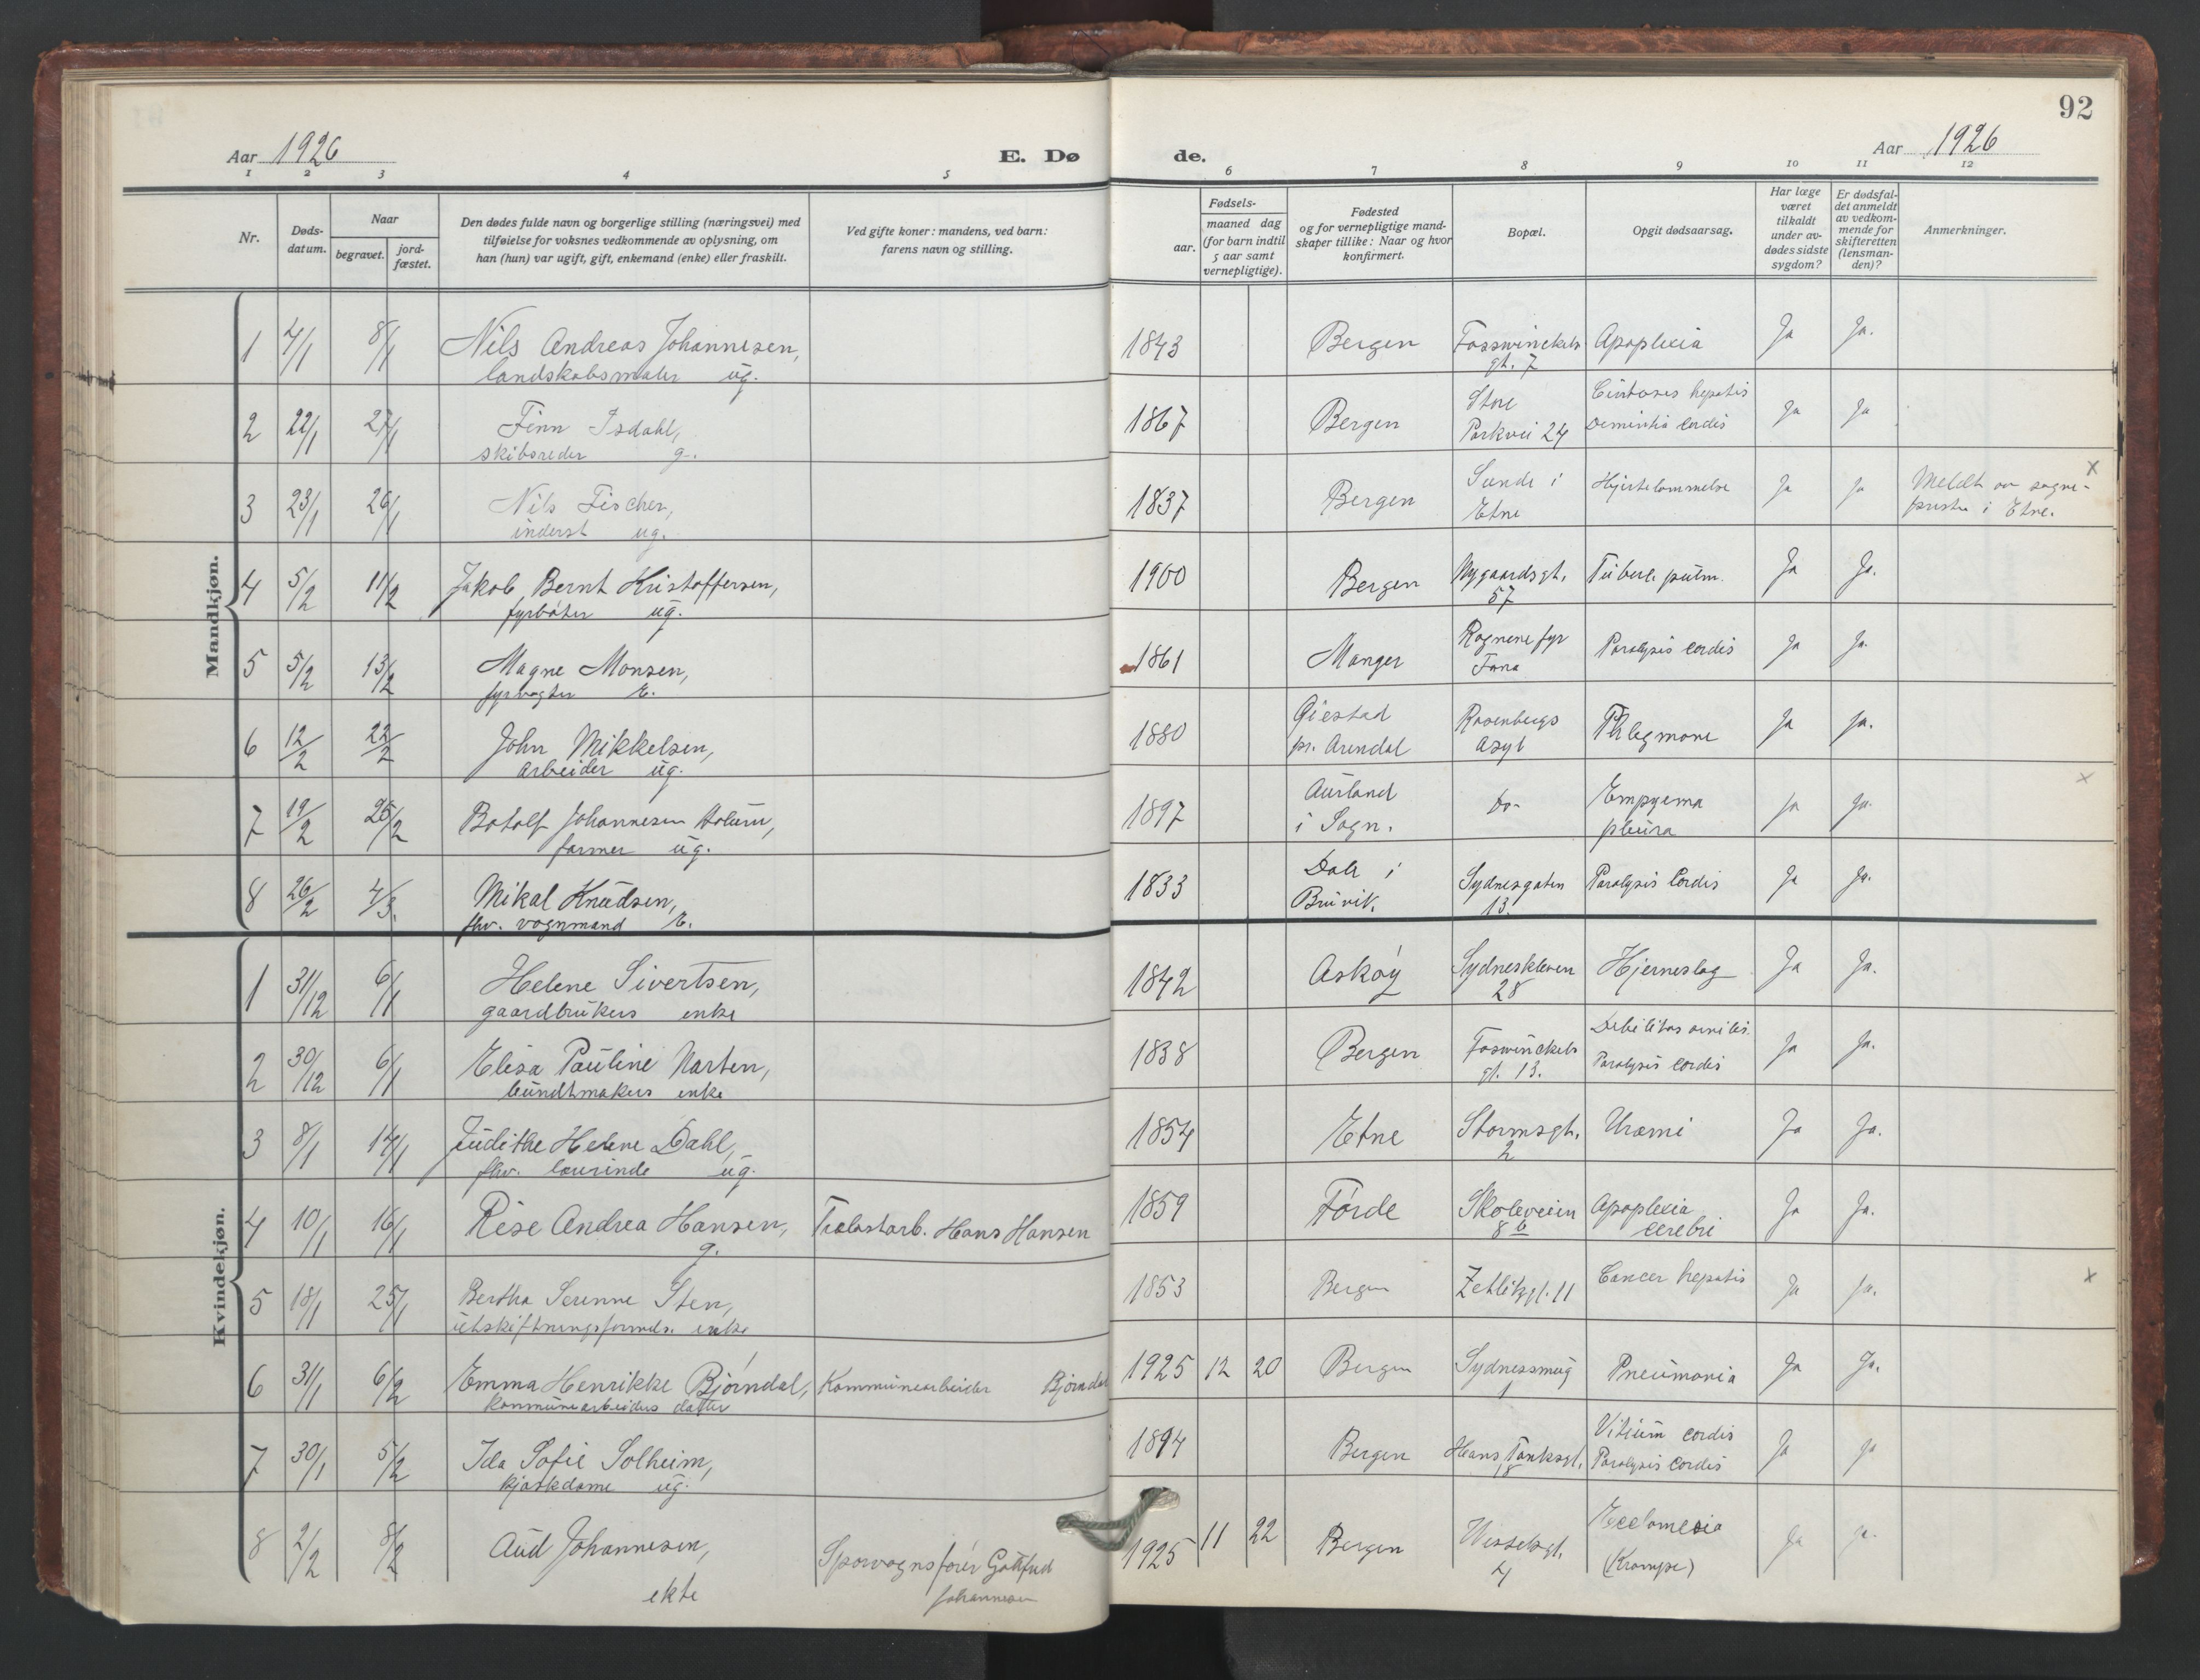 92
Aar 1926
E. Dø
de.
Aar 1926
1 2 3 4 5 6 7 8 9 10 11 12
Nr.
Døds-
datum.
Naar
begravet.
jord-
fæstet.
Den dødes fulde navn og borgerlige stilling (næringsvei) med
tilføielse for voksnes vedkommende av oplysning, om
han (hun) var ugift, gift, enkemand (enke) eller fraskilt.
Ved gifte koner: mandens, ved barn:
farens navn og stilling.
Fødsels-
aar.
maaned dag
(for barn indtil
5 aar samt
vernepligtige).
Fødested
og for vernepligtige mand-
skaper tillike: Naar og hvor
konfirmert.
Bopæl.
Opgit dødsaarsag.
Har læge
været
tilkaldt
under av-
dødes sidste
sygdom?
Er dødsfal-
det anmeldt
av vedkom-
mende for
skifteretten
(lensman-
den)?
Anmerkninger.
Mandkjøn.
1 4/1 8/1 Nils Andreas Johannesen, 1843 Bergen Fosswinckels Apoplexia Ja Ja.
landskabsmaler ug. gt. 7
2 22/1 27/1 Finn Isdahl, 1867 Bergen Store Cirrhoses hepatis Ja Ja
skibsreder g. Parkvei 24 Dementia cordis
3 23/1 26/1 Nils Fischer, 1837 Bergen Sunde i Hjertelammelse Ja Ja Meldt av sogne- x
inderst ug. Etne presten i Etne.
4 5/2 11/2 Jakob Bernt Kristoffersen, 1900 Bergen Nygaardsgt. Tuberc. pulm. Ja Ja.
fyrbøter ug. 57
5 5/2 13/2 Magne Monsen, 1861 Manger Rognene fyr Paralysis cordis Ja Ja.
fyrvogter E. Fana
6 12/2 22/2 John Mikkelsen, 1880 Øiestad Rosenbergs Phlegmone Ja Ja.
arbeider ug. pr. Arendal Asyl
7 19/2 26/2 Botolf Johannesen Holum, 1897 Aurland Do- Empyema Ja Ja. x
farmer ug. i Sogn. pleura
8 26/2 4/3. Mikal Knudsen, 1833 Dale i Sydnesgaten Paralysis Cordis Ja Ja.
fhv. vognmand E. Bruvik. 13.
Kvindekjøn.
1 31/12 6/1 Helene Sivertsen, 1842 Askøy Sydneskleven Hjerneslag Ja Ja.
gaardbrukers enke 28
2 30/12 6/1 Elisa Pauline Narten, 1838 Bergen Foswinckels Debilitas senilis. Ja Ja.
bundtmakers enke gt. 13. Paralysis cordis
3 8/1 14/1 Judithe Helene Dahl, 1854 Etne Stormsgt. Uræmi Ja Ja.
fhv. lærerinde ug. 2
4 10/1 16/1 Rise Andrea Hansen, Trælastarb. Hans Hansen 1859 Førde Skoleveien Apoplexia Ja Ja.
g. 8b cerebri
5 18/1 25/1 Bertha Serenne Sten, 1853 Bergen Zetlitzgt. 11 Cancer hepatis Ja Ja. x
utskiftningsformds. enke
6 31/1 6/2 Emma Henrikke Bjørndal, Kommunearbeider Bjørndal 1925 12 20 Bergen Sydnessmug Pneumonia Ja Ja.
kommunearbeiders datter 1
7 30/1 5/2 Ida Sofie Solheim, 1894 Bergen Hans Tanksgt. Vitium cordis Ja Ja
kjoskdame ug. 18 Paralysis cordis
8 2/2 8/2 Aud Johannesen, Sporvognsfører Gottfred 1925 11 22 Bergen Wesselsgt. Ecclamsia Ja Ja.
ekte Johannesen 4 (Krampe)